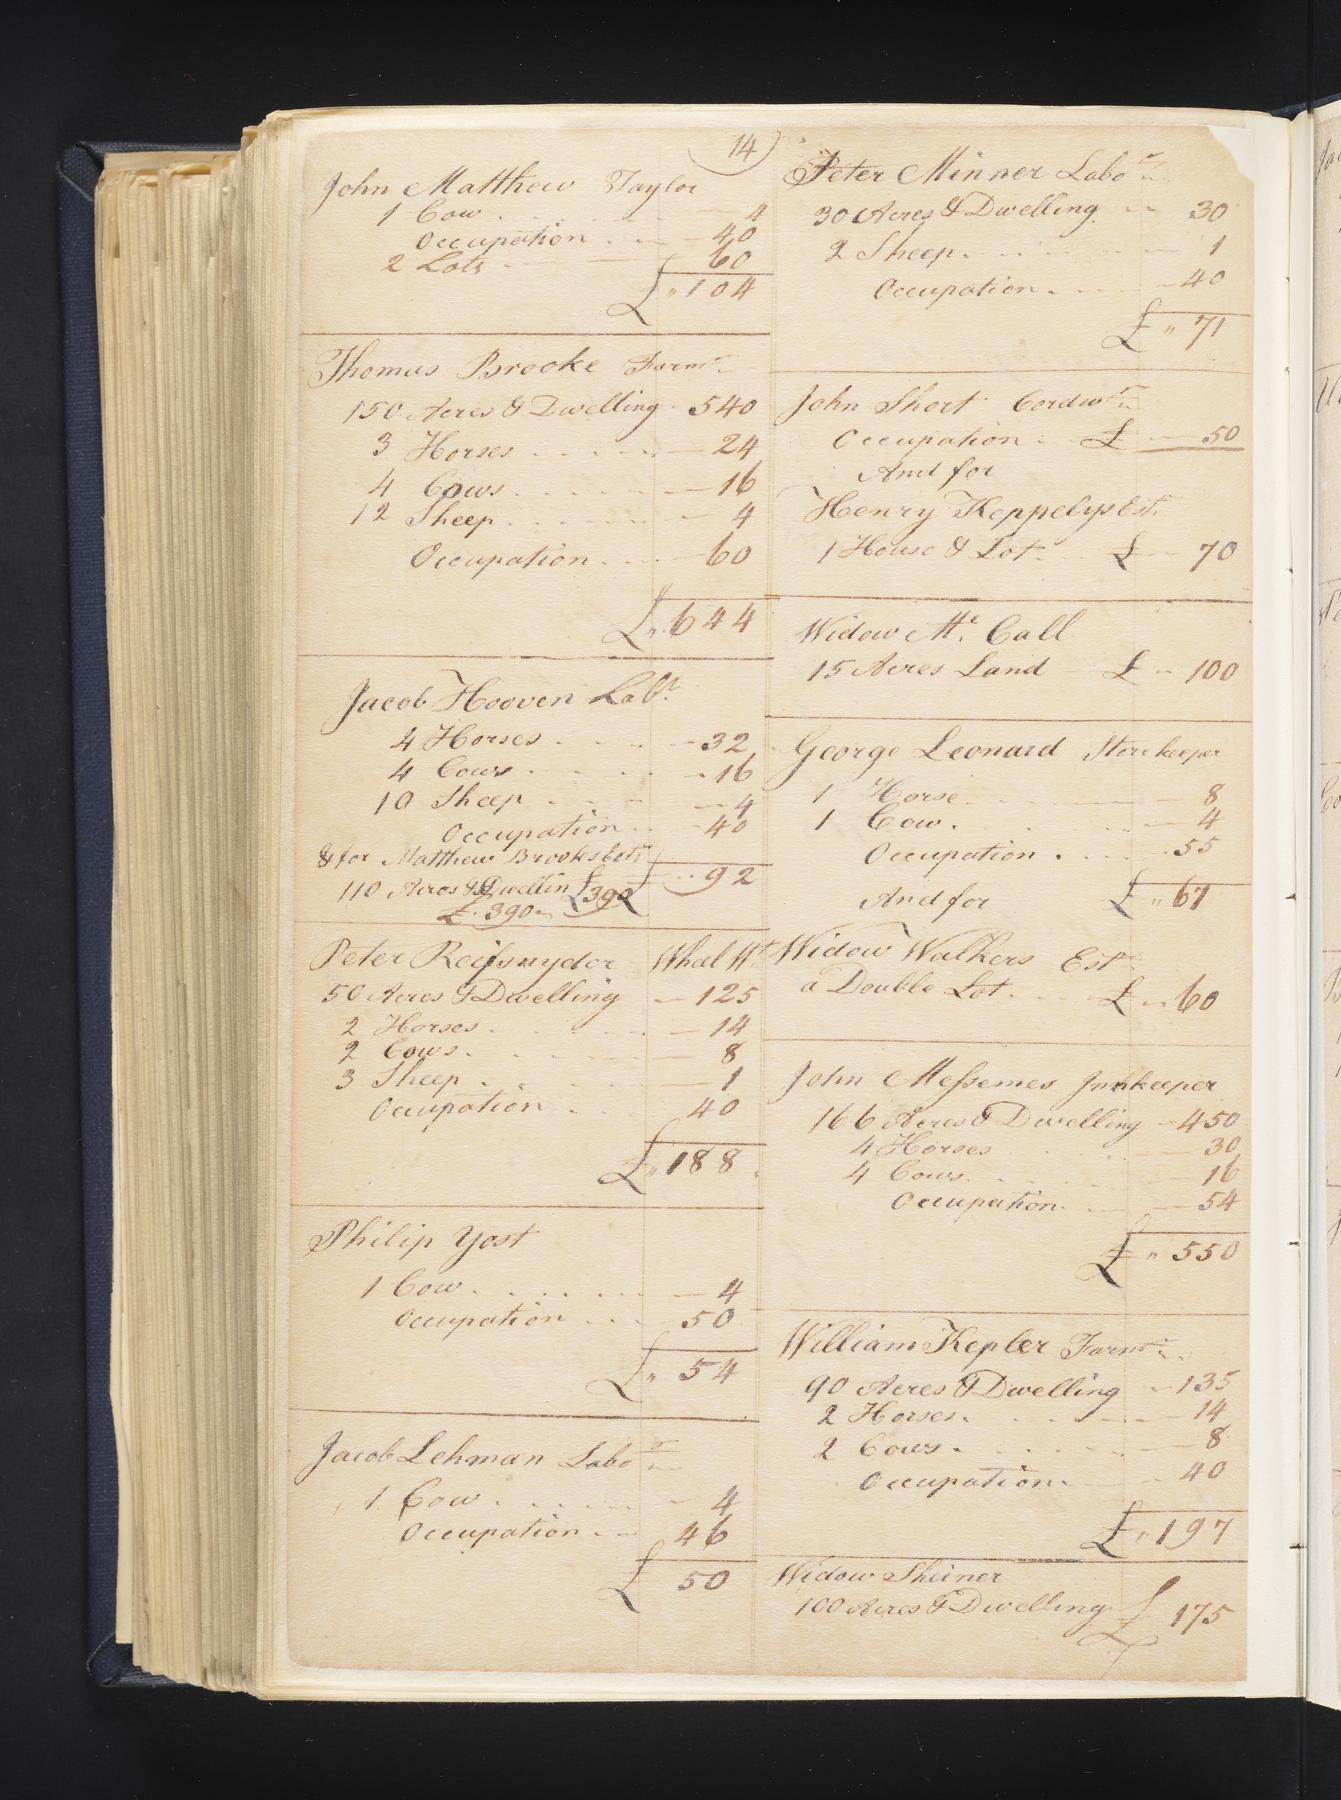 14
John Matthew Taylor
1 Cow 4
Occupation 40
2 Lots 60
£ " 104
Thomas Brooke Farmr
150 Acres & Dwelling 540
3 Horses 24
4 Cows 16
12 Sheep 4
Occupation 60
£ " 644
Jacob Hooven Labr
4 Horses 32
4 Cows 16
10 Sheep 4
Occupation 40
£ 92
& for Matthew Brookes Est
110 Acres & Dwellin £390
£ 390
Peter Reifsnyder Wheel Wt
50 Acres & Dwelling 125
2 Horses 14
2 Cows 8
3 Sheep 1
Occupation 40
£ " 188
Philip Yost
1 Cow 4
Occupation 50
£ " 54
Jacob Lehman Labor
1 Cow 4
Occupation 46
£ 50
Peter Minner Labor
30 Acres & Dwelling 30
2 Sheep 1
Occupation 40
£ " 71
John Short Cordwr
Occupation £ 50
And for
Henry Keppelys Est
1 House & Lot £ 70
Widow Mc Call
15 Acres Land £ 100
George Leonard Storekeeper
1 Horse 8
1 Cow 4
Occupation 55
£ " 67
And for
Widow Walkers Est
a Double Lot £ 60
John Messemes Innkeeper
166 Acres & Dwelling 450
4 Horses 30
4 Cows 16
Occupation 54
£ " 550
William Kepler Farmr
90 Acres & Dwelling 135
2 Horses 14
2 Cows 8
Occupation 40
£ " 197
Widow Sheiner
100 Acres & Dwelling £ 175